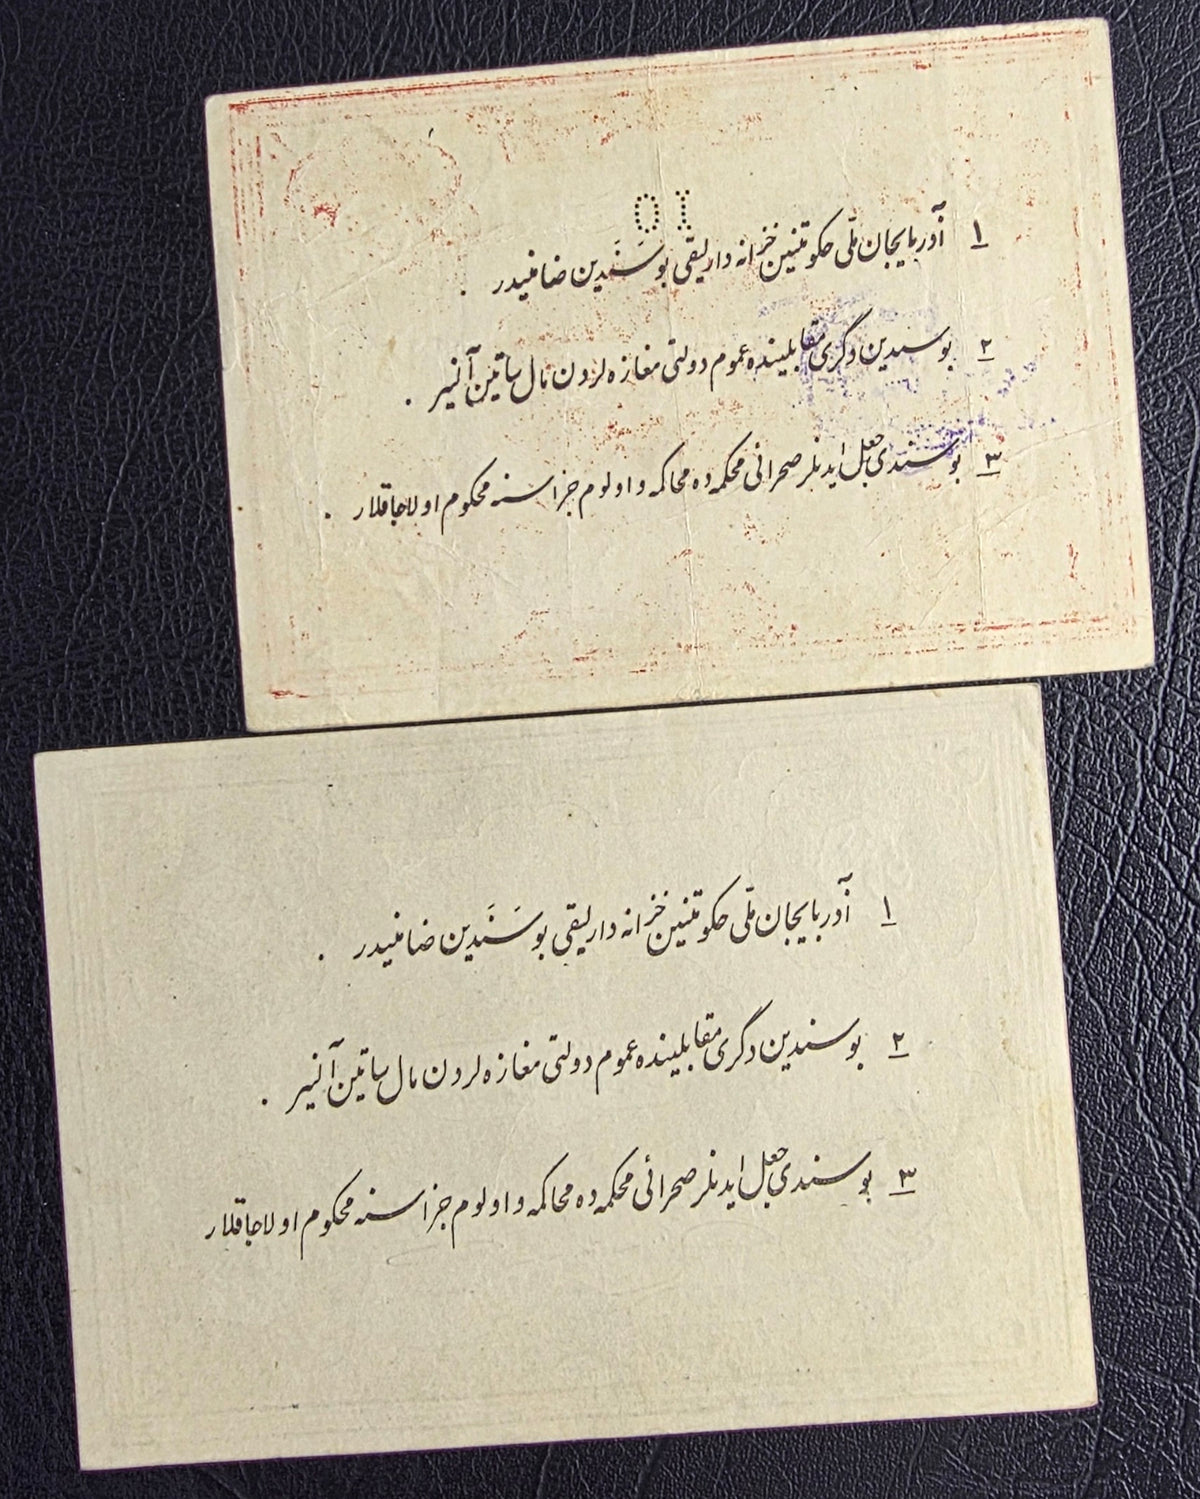 10
۱ آذربایجان ملّی حکومتنین خزانه دارلیقی بو سَنَدین ضامنیدر .
۲ بو سندین دگری مقابلینده عموم دولتی مغازه لردن مال ساتین آلنیر .
۳ بو سندی جعل ایدنلر صحرائی محکمه ده محاکمه و اولوم جزاسنه محکوم اولاجاقلار .
۱ آذربایجان ملّی حکومتنین خزانه دارلیقی بو سَنَدین ضامنیدر .
۲ بو سندین دگری مقابلینده عموم دولتی مغازه لردن مال ساتین آلنیر .
۳ بو سندی جعل ایدنلر صحرائی محکمه ده محاکمه و اولوم جزاسنه محکوم اولاجاقلار